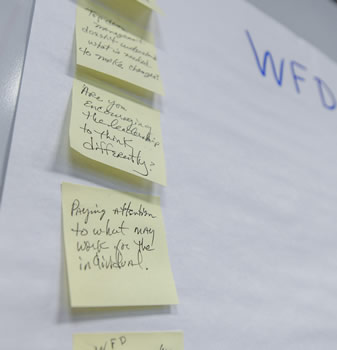 management
what is needed
to make changes
WFD
Are you
encouraging
the leadership
to think
differently?
Paying attention
to what may
work for the
individual.
WFD